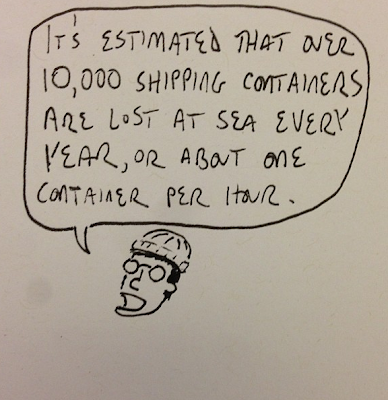 IT'S ESTIMATED THAT OVER
10,000 SHIPPING CONTAINERS
ARE LOST AT SEA EVERY
YEAR, OR ABOUT ONE
CONTAINER PER HOUR.